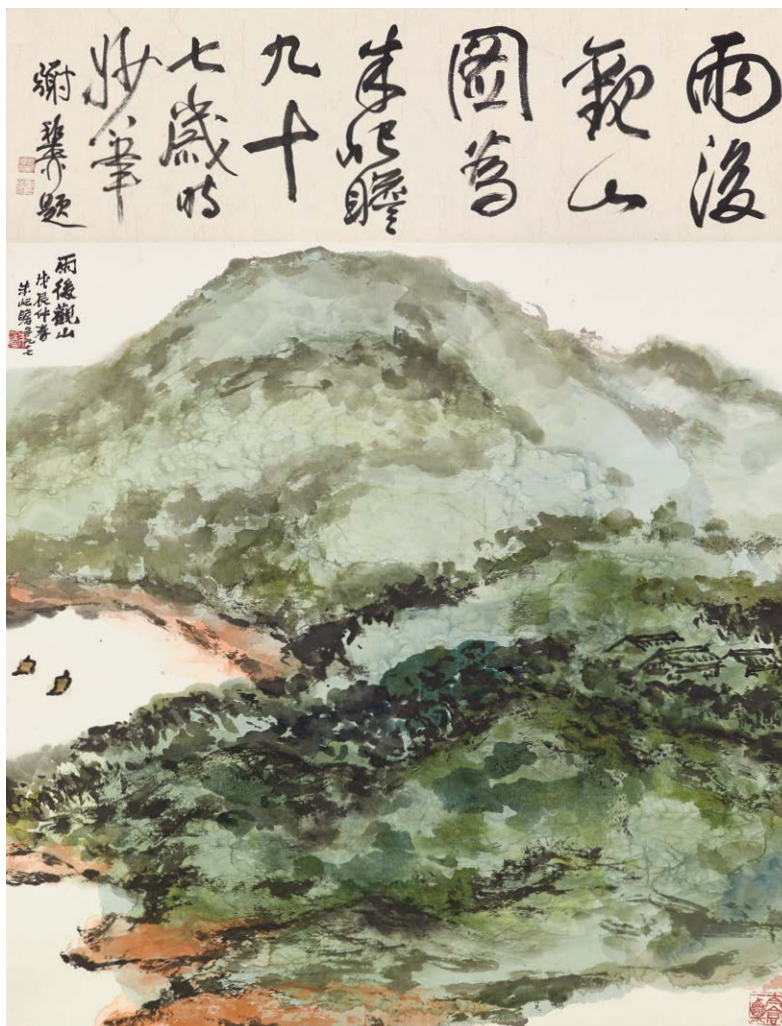 雨後
觀山
圖為
朱屺瞻
九十
七歲時
妙筆
謝稚柳題
雨後觀山
戊辰仲春
朱屺瞻年九七
太倉一粟